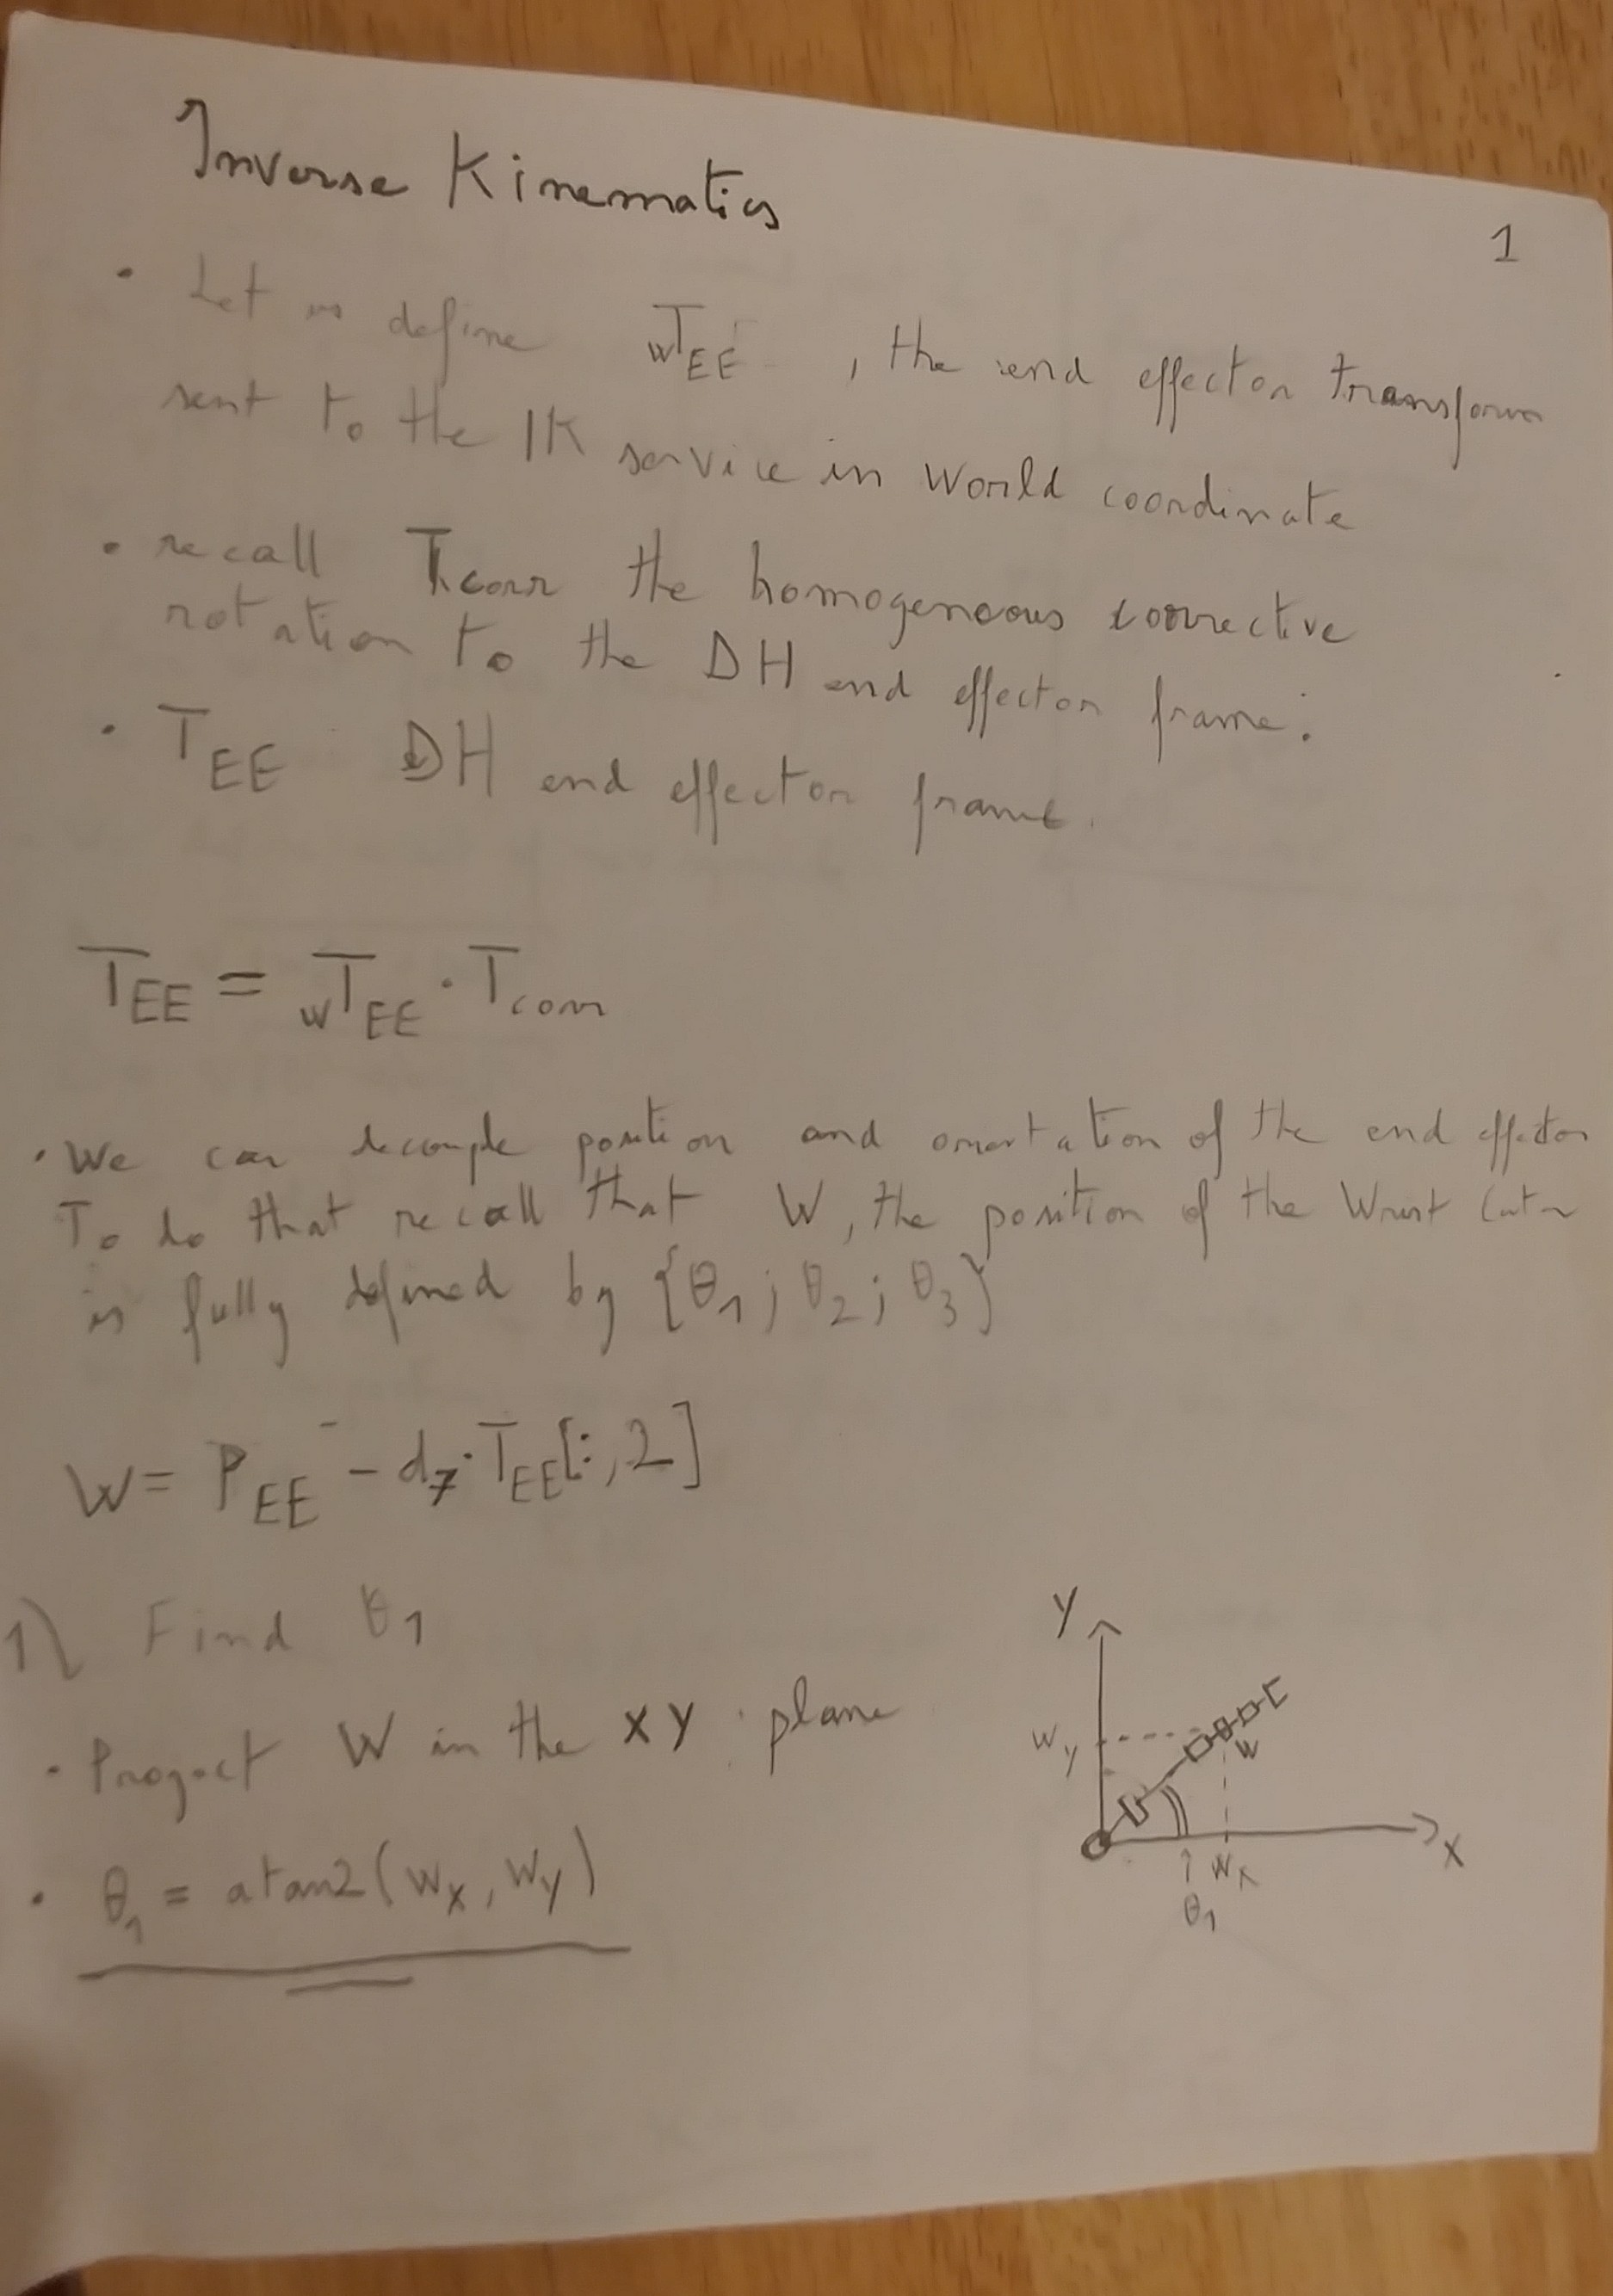 Inverse Kinematics
1
• Let us define wTEE , the end effector transform
sent to the IK service in World coordinate
• recall Tcorr the homogeneous corrective
rotation to the DH end effector frame.
• TEE DH end effector frame.
TEE = wTEE · Tcorr
• We can decouple position and orientation of the end effector
To do that recall that W, the position of the Wrist
is fully defined by {θ1; θ2; θ3}
W = PEE - d7·TEE[:,2]
1) Find θ1
• Project W in the XY plane
• θ1 = atan2(Wx, Wy)
Y
Wy
W
X
Wx
θ1